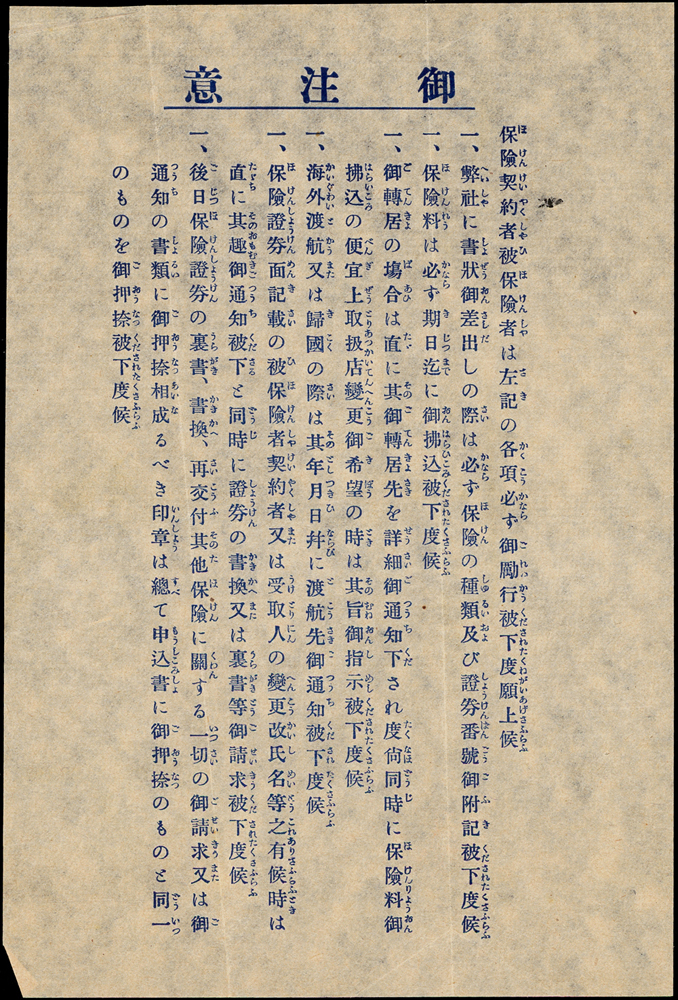 御注意
保險契約者被保險者は左記の各項必ず御勵行被下度願上候
一、弊社に書狀御差出しの際は必ず保險の種類及び證券番號御附記被下度候
一、保險料は必ず期日迄に御拂込被下度候
一、御轉居の塲合は直に其御轉居先を詳細御通知下され度尙同時に保險料御
拂込の便宜上取扱店變更御希望の時は其旨御指示被下度候
一、海外渡航又は歸國の際は其年月日幷に渡航先御通知被下度候
一、保險證券面記載の被保險者契約者又は受取人の變更改氏名等之有候時は
直に其趣御通知被下と同時に證券の書換又は裏書等御請求被下度候
一、後日保險證券の裏書、書換、再交付其他保險に關する一切の御請求又は御
通知の書類に御押捺相成るべき印章は總て申込書に御押捺のものと同一
のものを御押捺被下度候